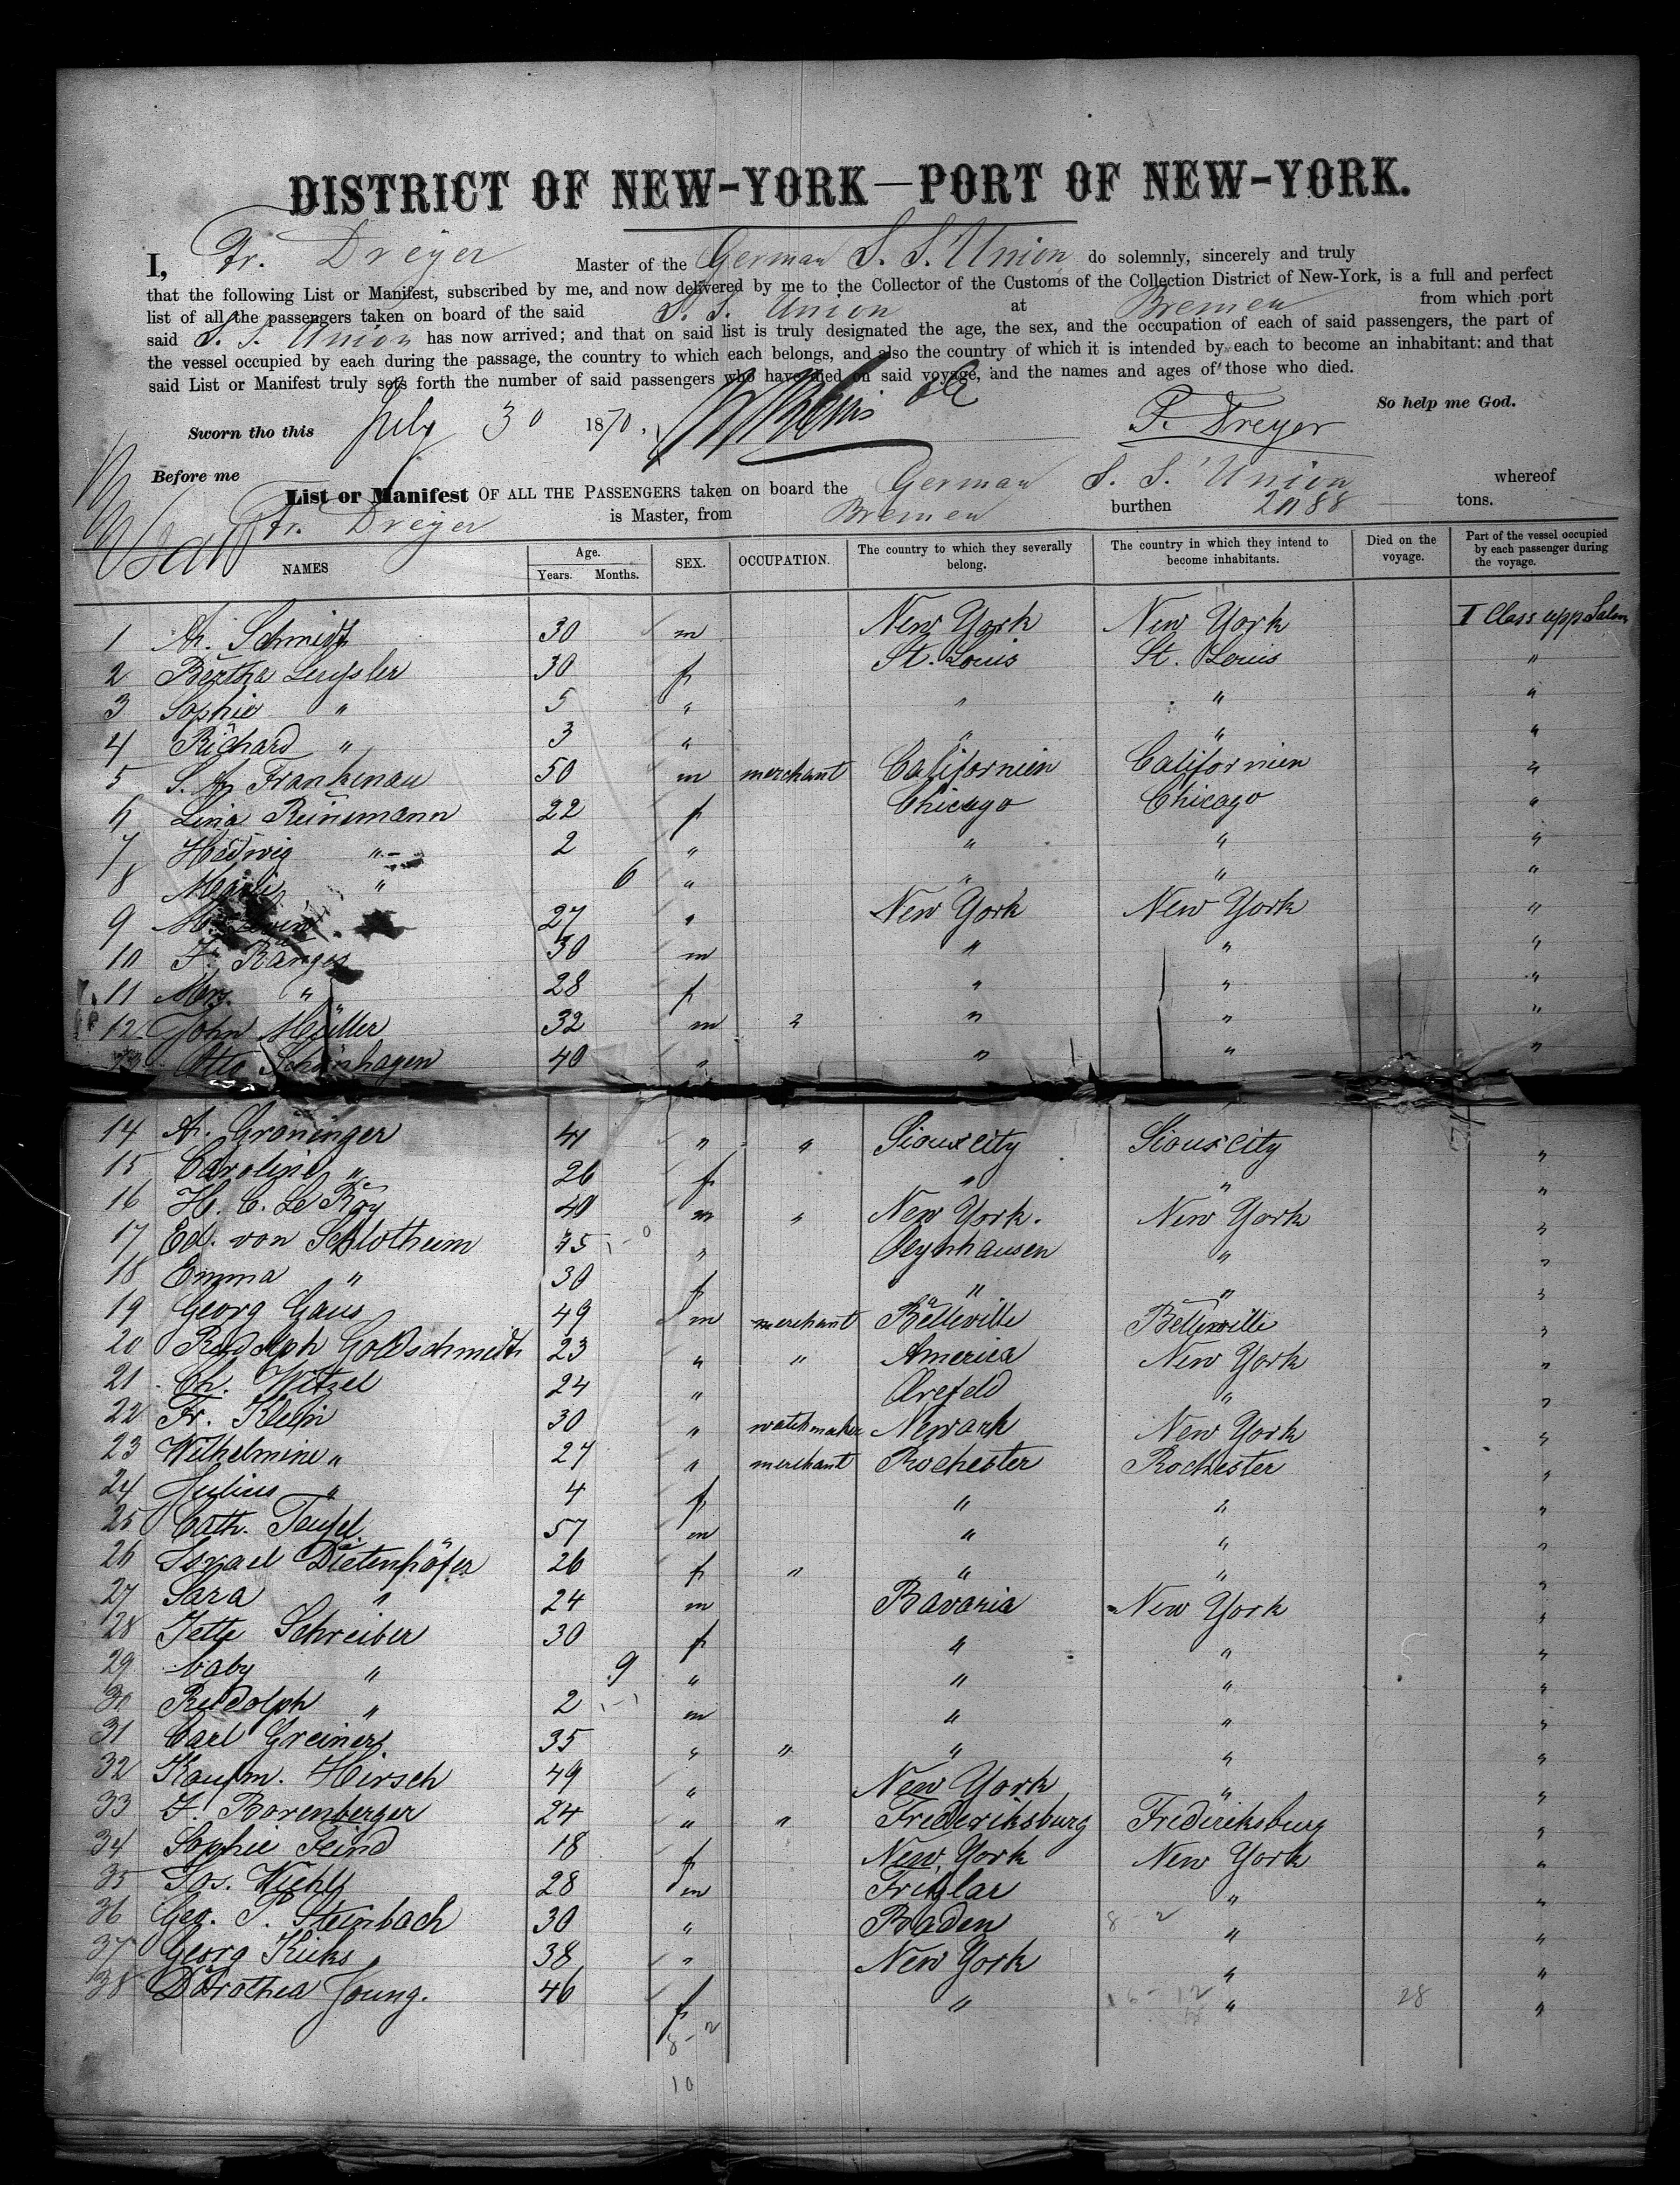 DISTRICT OF NEW-YORK—PORT OF NEW-YORK.
I, Fr. Dreyer Master of the German S. S. Union do solemnly, sincerely and truly
that the following List or Manifest, subscribed by me, and now delivered by me to the Collector of the Customs of the Collection District of New-York, is a full and perfect
list of all the passengers taken on board of the said S. S. Union at Bremen from which port
said S. S. Union has now arrived; and that on said list is truly designated the age, the sex, and the occupation of each of said passengers, the part of
the vessel occupied by each during the passage, the country to which each belongs, and also the country of which it is intended by each to become an inhabitant: and that
said List or Manifest truly sets forth the number of said passengers who have died on said voyage, and the names and ages of those who died.
So help me God.
Sworn tho this July 30 1870, F. Dreyer
Before me
List or Manifest OF ALL THE PASSENGERS taken on board the German S. S. Union whereof
Fr. Dreyer is Master, from Bremen burthen tons.
NAMES Age. Years. Months. SEX. OCCUPATION. The country to which they severally belong. The country in which they intend to become inhabitants. Died on the voyage. Part of the vessel occupied by each passenger during the voyage.
1 A. Schmidt 30 m New York New York I Class upp Salon
2 Bertha 30 f St. Louis St. Louis "
3 Sophie " 5 " " " "
4 Richard " 3 " " " "
5 S. A. Frankenau 50 m merchant Californien Californien "
6 Lina Reinemann 22 f Chicago Chicago "
7 Hedwig " 2 " " " "
8 " 6 " " " "
9 M. 27 " New York New York "
10 F. Ranges 30 m " " "
11 Mrs. " 28 f " " "
12 John Müller 32 m " " " "
13 Otto Schönhagen 40 " " " "
14 A. Gröninger 41 " " Sioux City Sioux City "
15 Caroline " 26 f " " "
16 H. C. Le Roy 40 m " New York. New York "
17 Ed. von Schlotheim 35 " Oeynhausen " "
18 Emma " 30 f " " "
19 Georg Gaus 49 m merchant Belleville Belleville "
20 Rudolph Goldschmidt 23 " " America New York "
21 Ch. Witzel 24 " Crefeld " "
22 Fr. Klein 30 " watchmaker Newark New York "
23 Wilhelmine " 27 " merchant Rochester Rochester "
24 Julius " 4 f " " "
25 Cath. Teufel 57 m " " "
26 Israel Dietenhöfer 26 f " " " "
27 Sara " 24 m Bavaria New York "
28 Jette Schreiber 30 f " " "
29 baby " 9 " " " "
30 Rudolph " 2 m " " "
31 Carl Greiner 35 " " " " "
32 Kaufm. Hirsch 49 " New York " "
33 F. Borenberger 24 " " Frederiksburg Frederiksburg "
34 Sophie Feind 18 f New York New York "
35 Jos. Wiehl 28 m Fritzlar " "
36 Geo. P. Steinbach 30 " Baden 8-2 " "
37 Georg Kicks 38 " New York " "
38 Dorothea Young. 46 f " 16-12 " 28 "
8-2
10